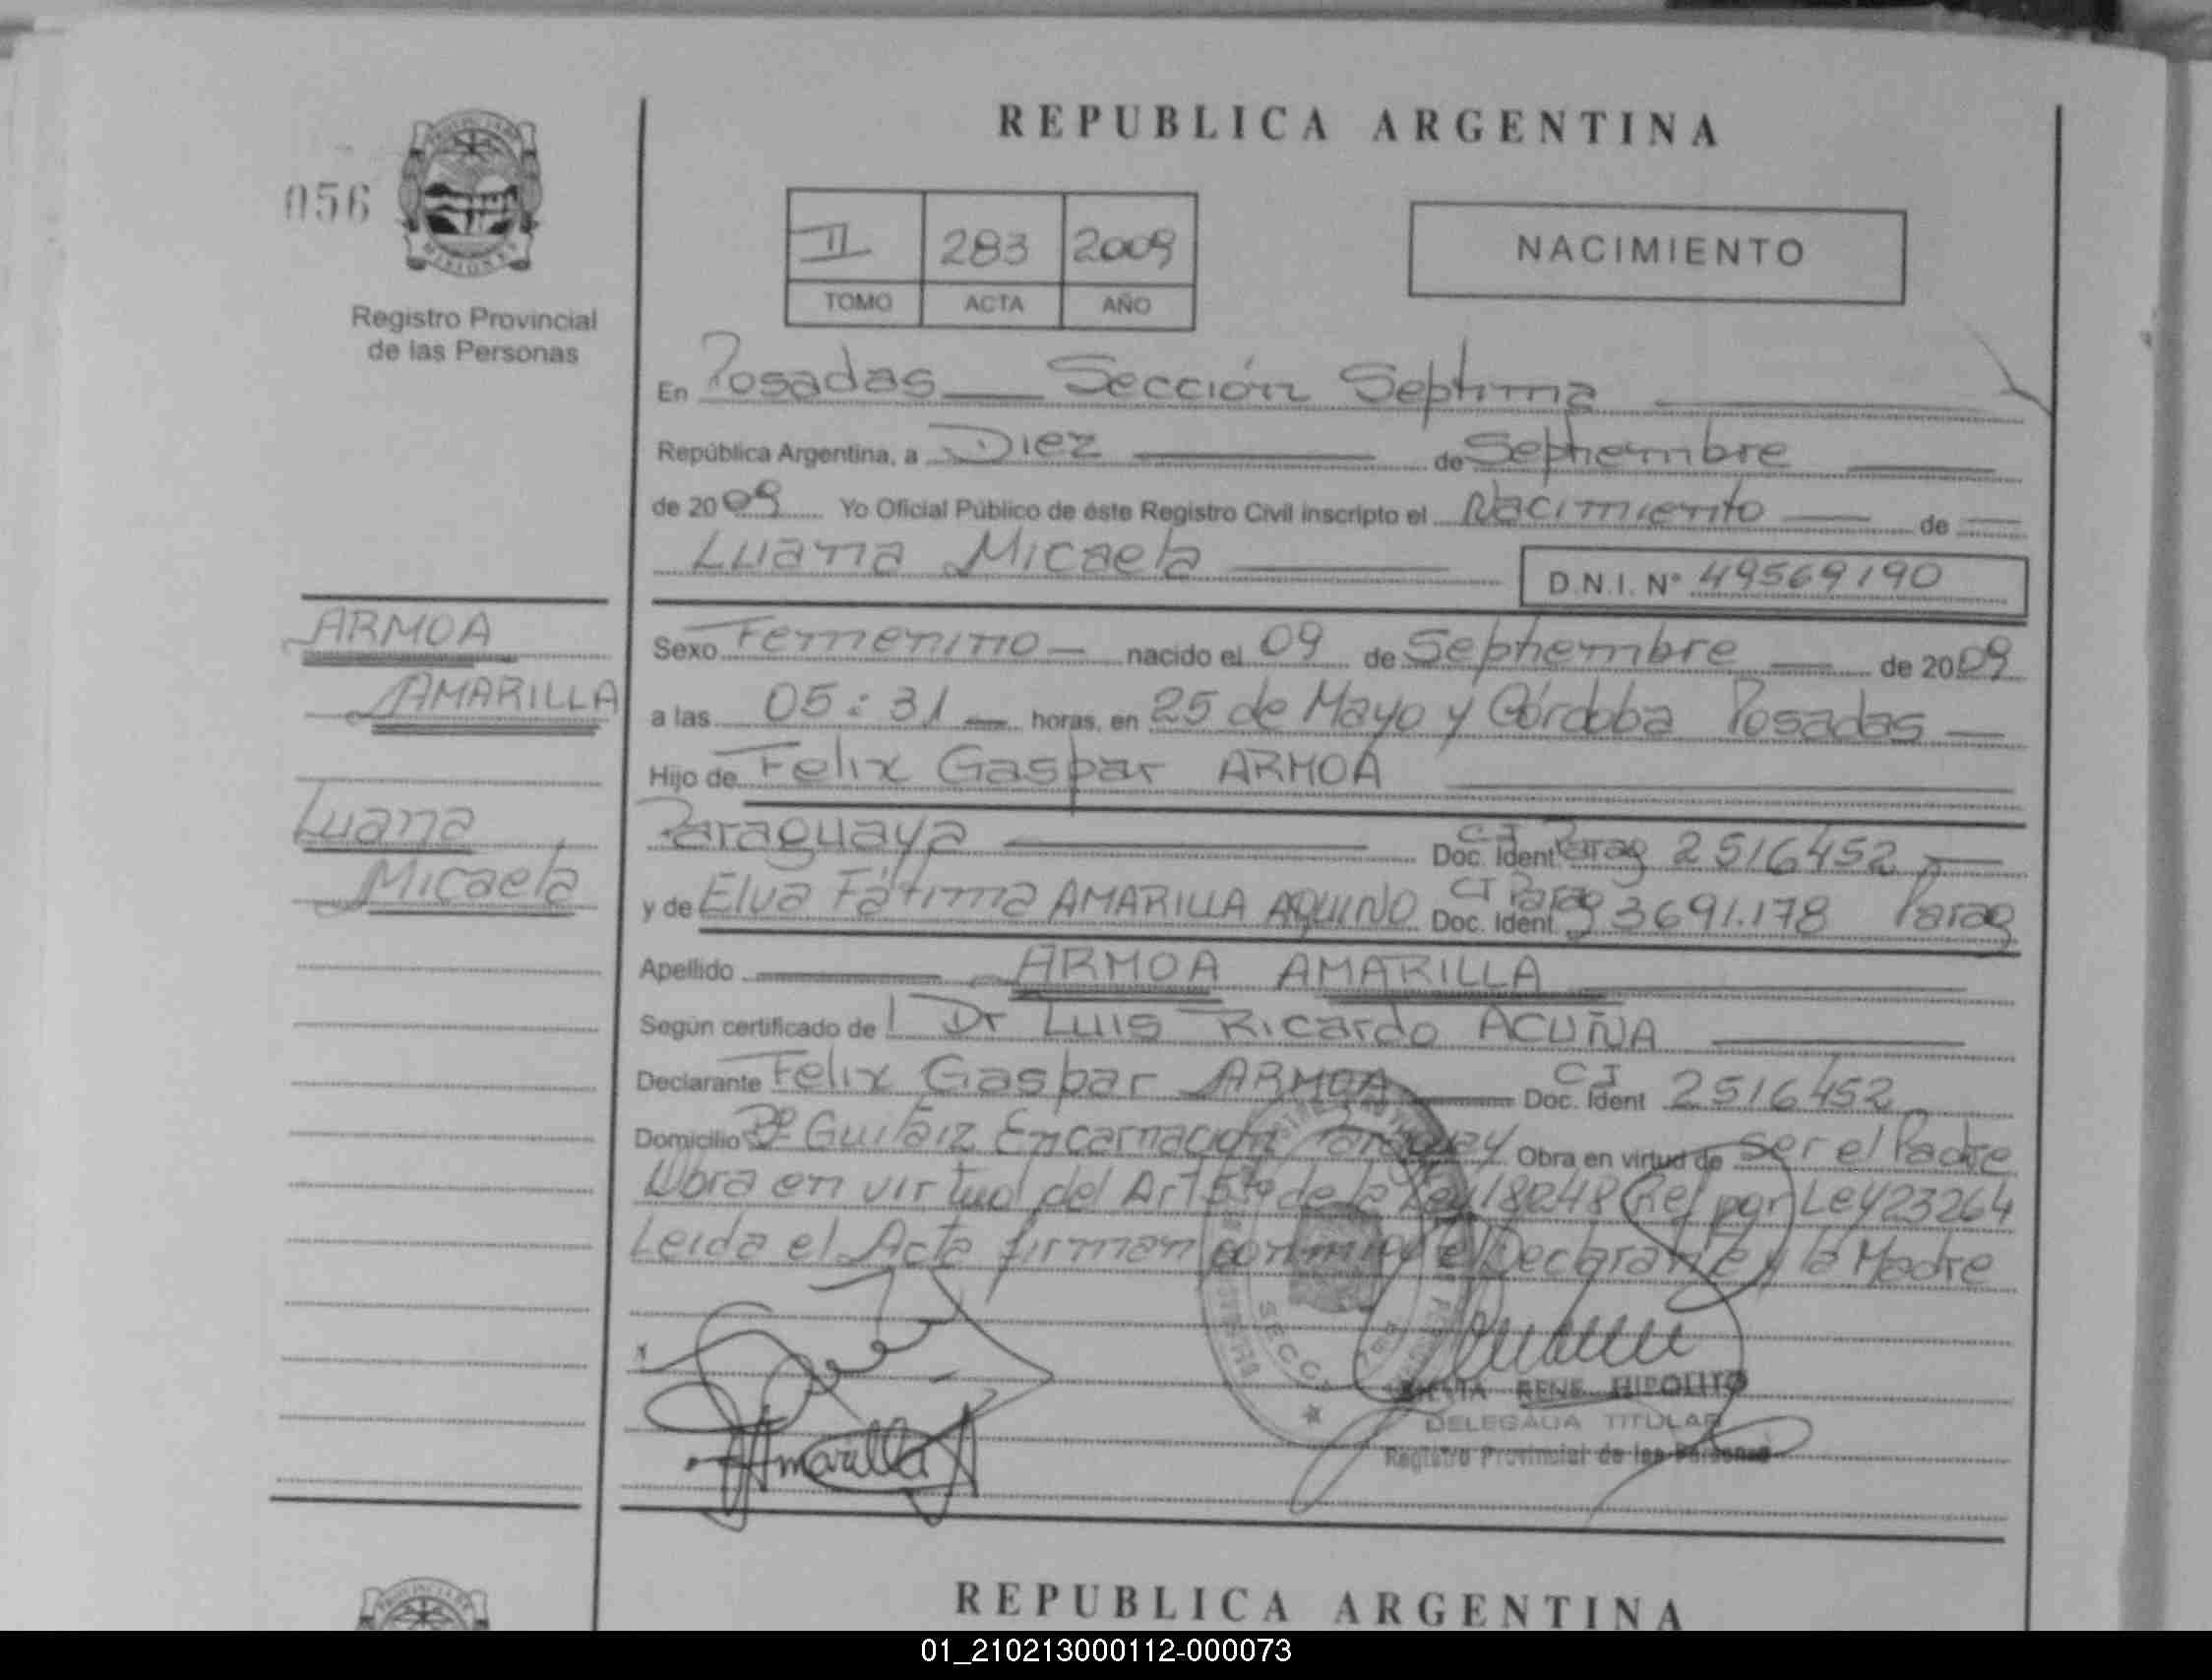 REPUBLICA ARGENTINA
056
PROVINCIA DE
MISIONES
Registro Provincial
de las Personas
II 283 2009
TOMO ACTA AÑO
NACIMIENTO
En Posadas Sección Septima
República Argentina, a Diez de Septiembre
de 2009 Yo Oficial Público de éste Registro Civil inscripto el Nacimiento de
Luana Micaela D.N.I. N° 49569190
ARMOA
AMARILLA
Luana
Micaela
Sexo Femenino nacido el 09 de Septiembre de 2009
a las 05:31 horas, en 25 de Mayo y Córdoba Posadas
Hijo de Felix Gaspar ARMOA
Paraguaya Doc. Ident CI Parag 2516452
y de Elva Fátima AMARILLA AQUINO Doc. Ident CI Parag 3691.178 Parag
Apellido ARMOA AMARILLA
Según certificado de Dr Luis Ricardo ACUÑA
Declarante Felix Gaspar ARMOA Doc. Ident CI 2516452
Domicilio Bº Encarnación Paraguay Obra en virtud de Ser el Padre
Obra en virtud del Art 5to de la Ley 18248 Ref por Ley 23264
Leida el Acta firman conmigo el Declarante y la Madre
SECC
Amarilla
RENE HIPOLITO
DELEGADA TITULAR
Registro Provincial de las Personas
PROVINCIA DE
REPUBLICA ARGENTINA
01_210213000112-000073